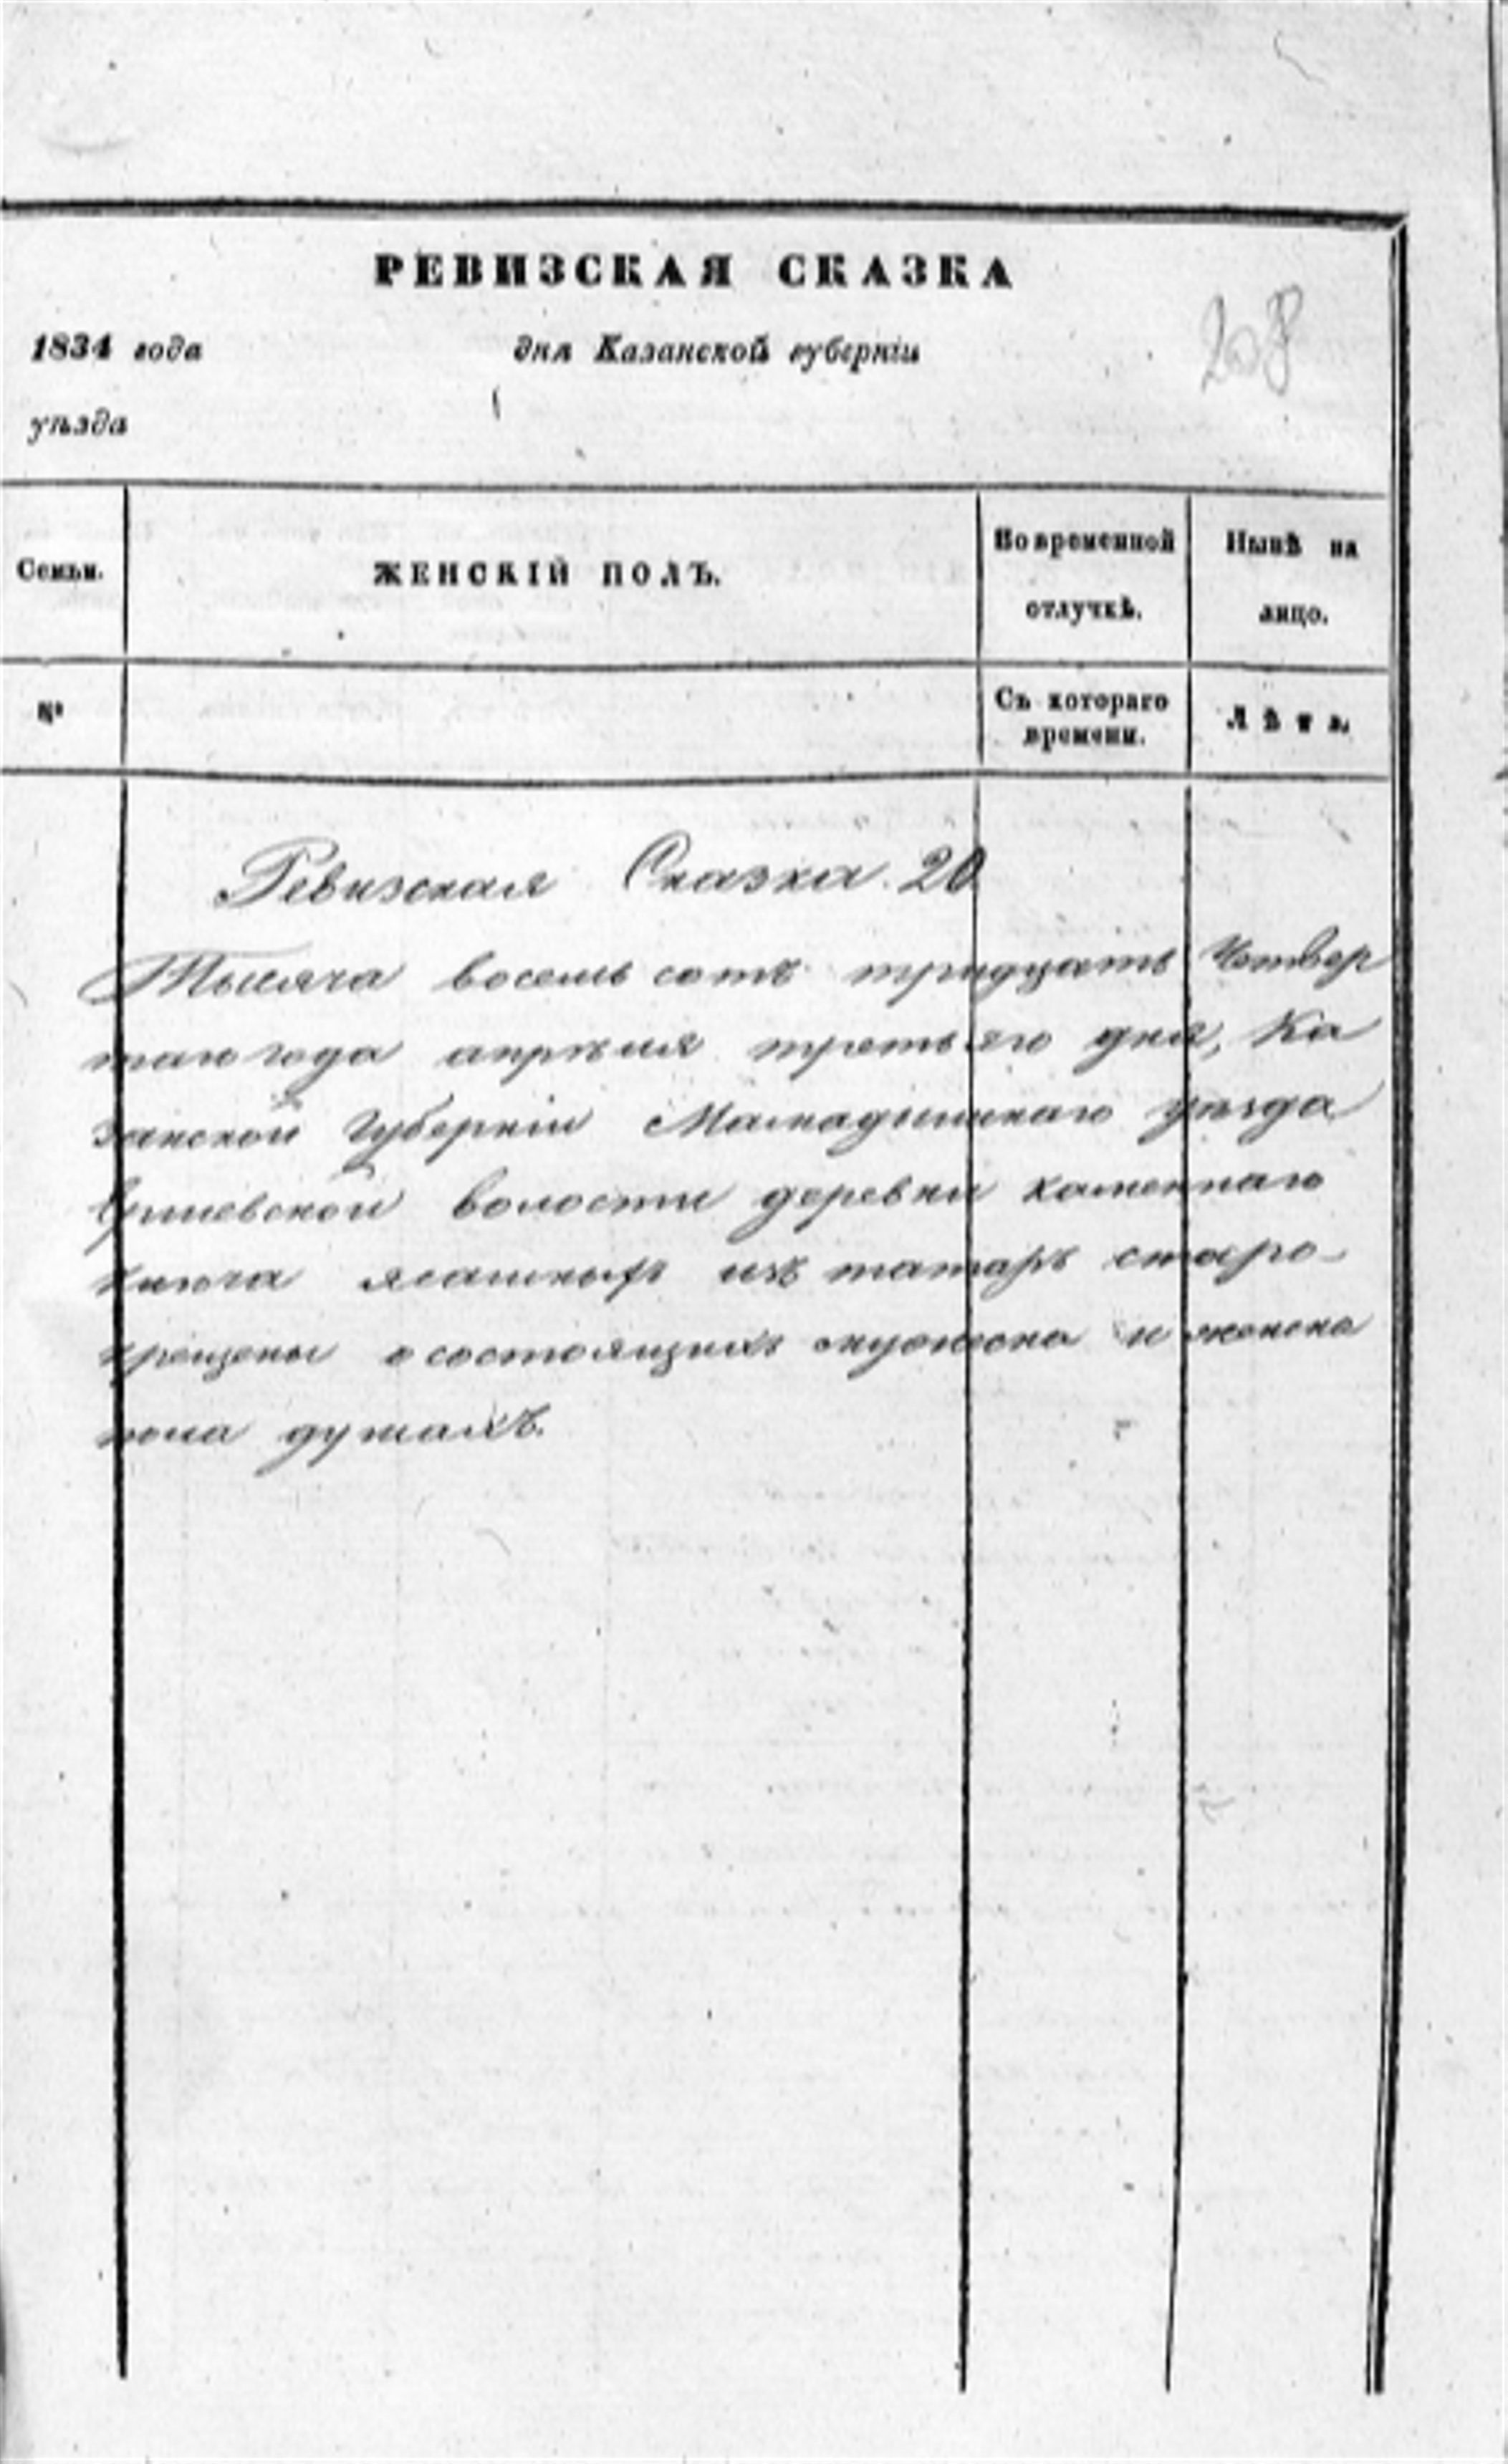 РЕВИЗСКАЯ СКАЗКА
208
1834 года дня Казанской губерніи
уѣзда
Семьи. ЖЕНСКІЙ ПОЛЪ. Во временной отлучкѣ. Нынѣ на лицо.
№ Съ котораго времени. Лѣта.
Ревизская Сказка. 20
Тысяча восемь сотъ тридцать четвер
таго года апрѣля третьяго дня, Ка
занской губерніи Мамадышскаго уѣзда
волости деревни каменнаго
ключа ясашныхъ изъ татаръ старо-
крещены о состоящихъ мужеска и женска
пола душахъ.